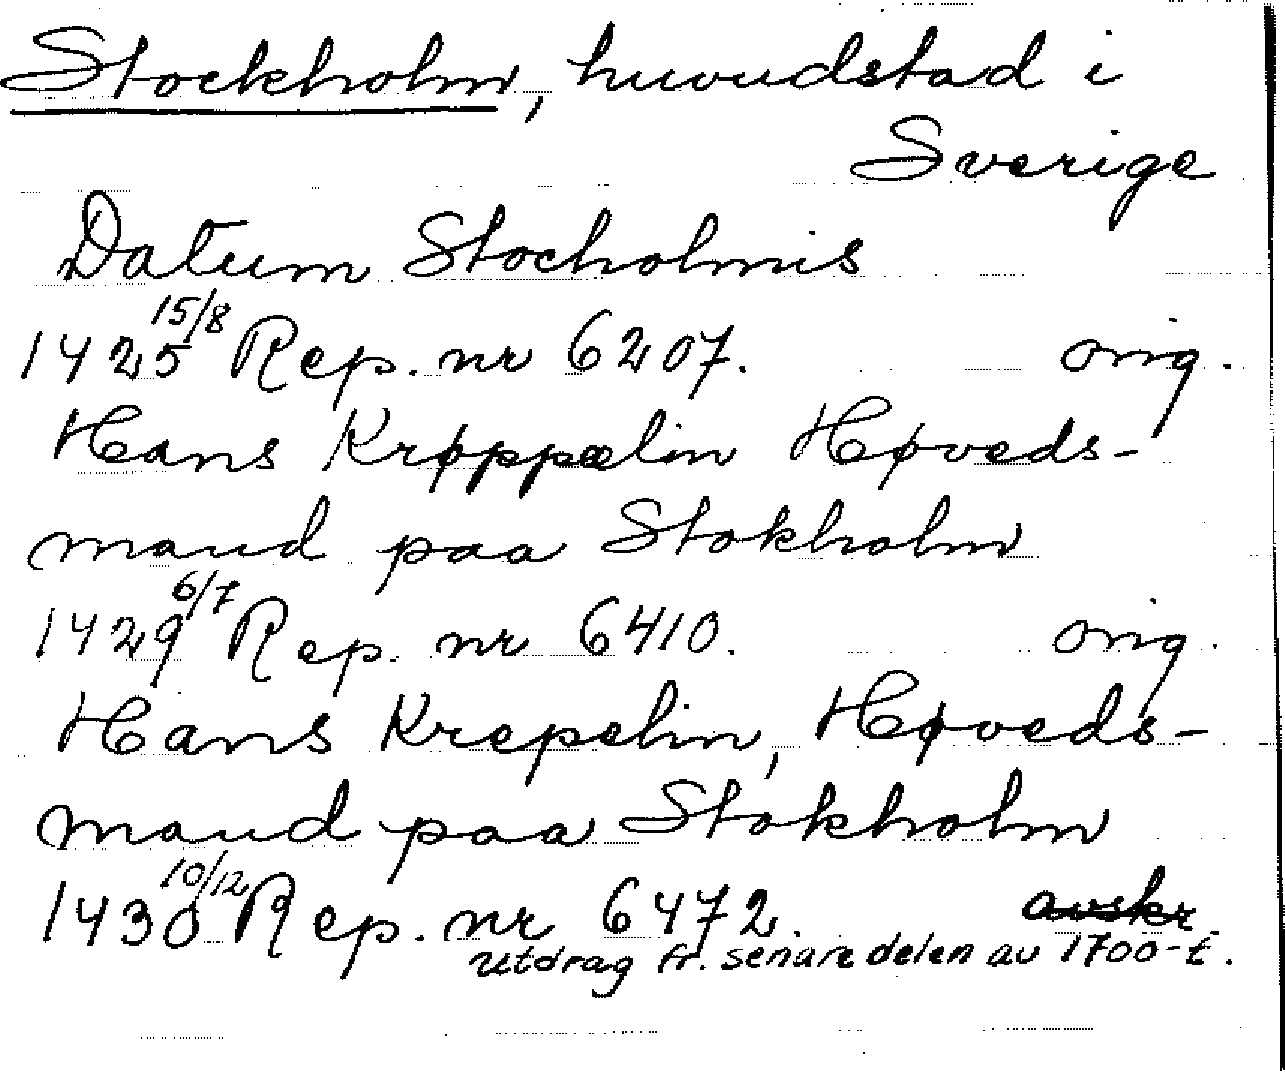 Stockholm, huvudstad i
Sverige
Datum Stocholmis
1425 15/8 Rep. nr 6207. orig.
Hans Krøppælin Høveds-
mand paa Stokholm
1429 6/7 Rep. nr 6410. orig.
Hans Krepelin, Høveds-
mand paa Stokholm
1430 10/12 Rep. nr 6472. avskr.
utdrag fr. senare delen av 1700-t.